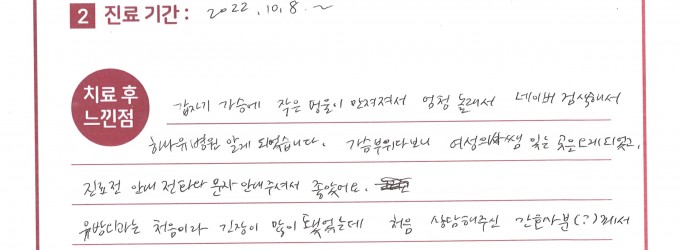 2 진료 기간 : 2022. 10. 8. ~
치료 후
느낀점
갑자기 가슴에 작은 멍울이 만져져서 엄청 놀래서 네이버 검색해서
하나유병원 알게 되었습니다. 가슴부위다보니 여성의사쌤 있는 곳으로 되었고,
진료전 안내 전화와 문자 안내주셔서 좋았어요.
유방외과는 처음이라 긴장이 많이 됐었는데 처음 상담해주신 간호사분(?)께서